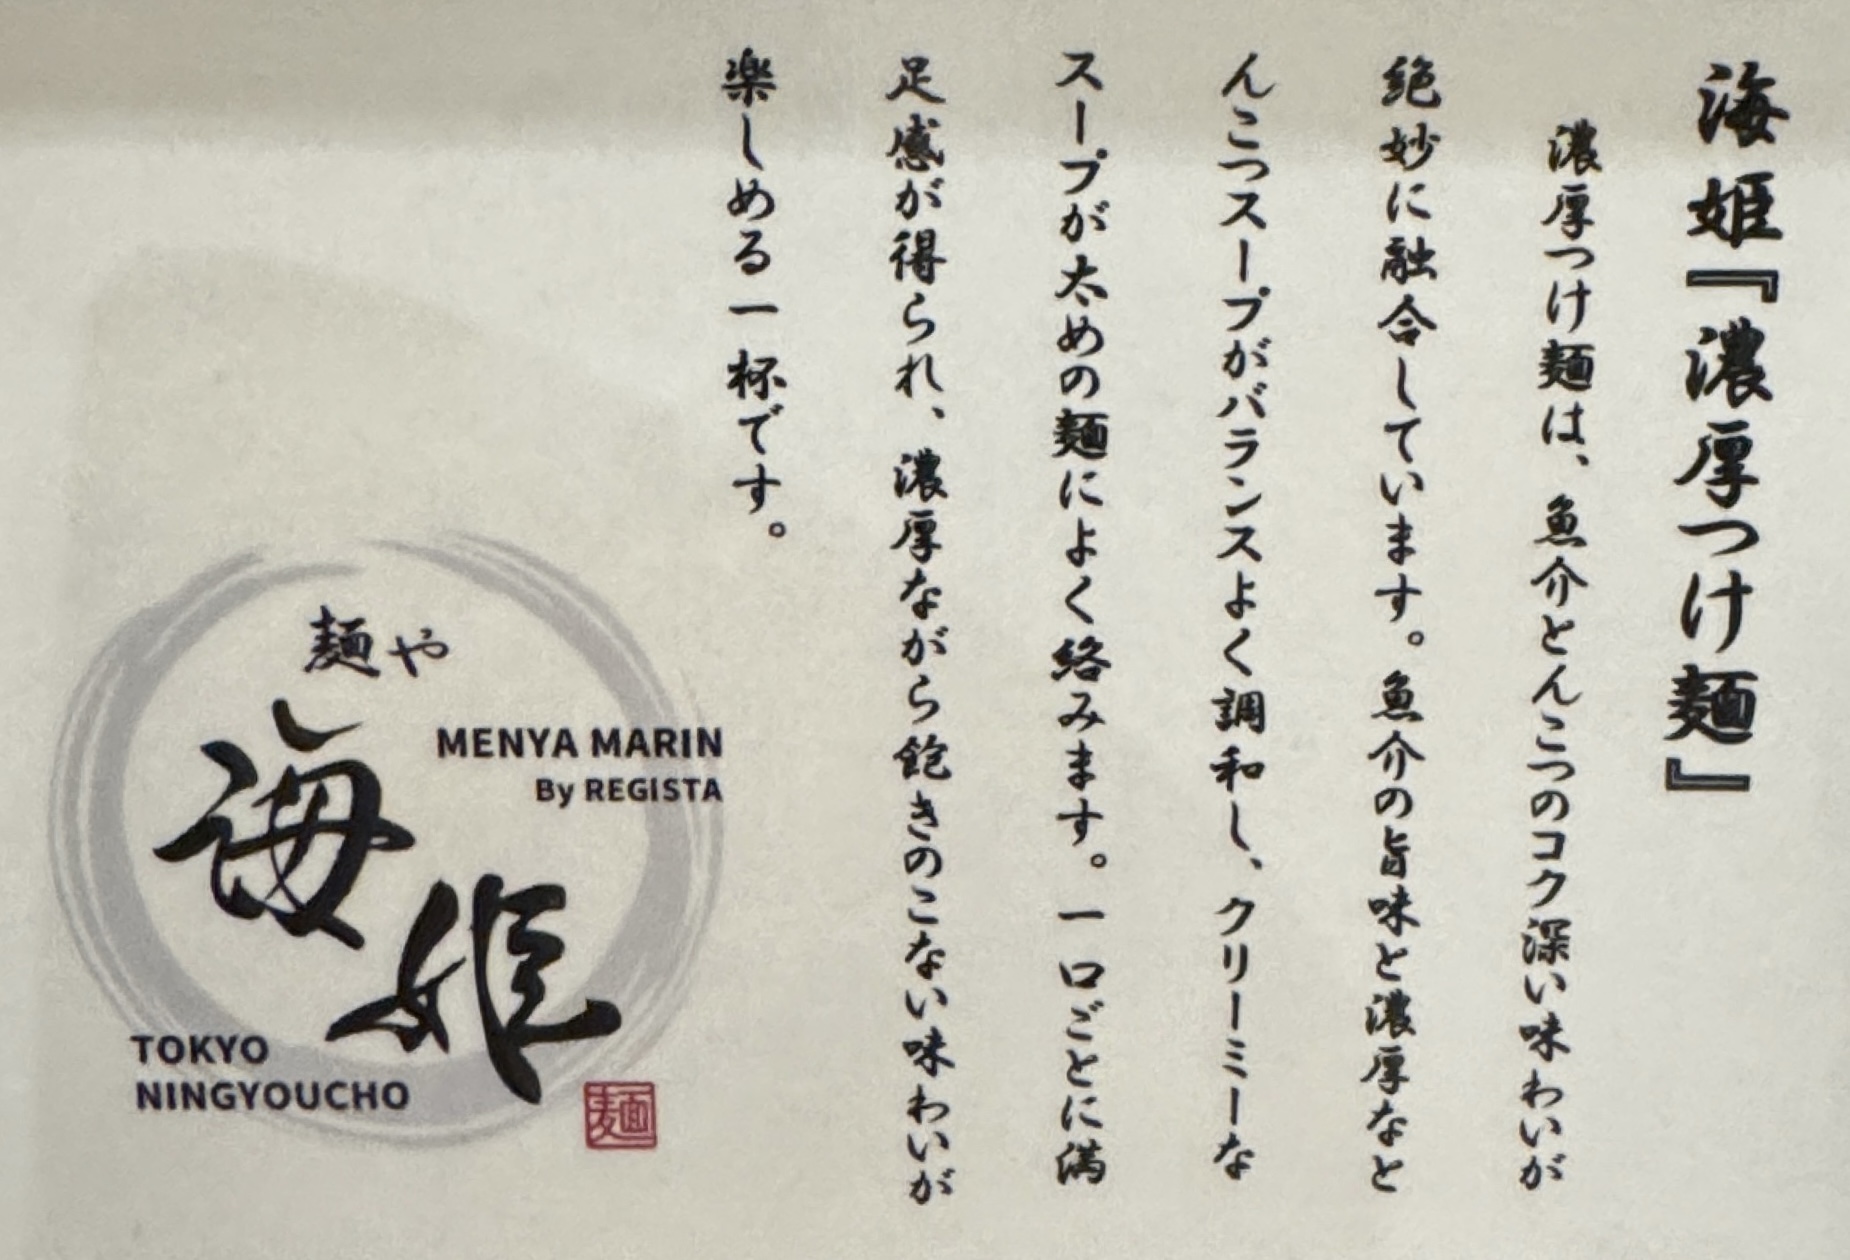 海姫『濃厚つけ麺』
濃厚つけ麺は、魚介とんこつのコク深い味わいが
絶妙に融合しています。魚介の旨味と濃厚なと
んこつスープがバランスよく調和し、クリーミーな
スープが太めの麺によく絡みます。一口ごとに満
足感が得られ、濃厚ながら飽きのこない味わいが
楽しめる一杯です。
麺や
海姫
MENYA MARIN
By REGISTA
TOKYO
NINGYOUCHO
麺